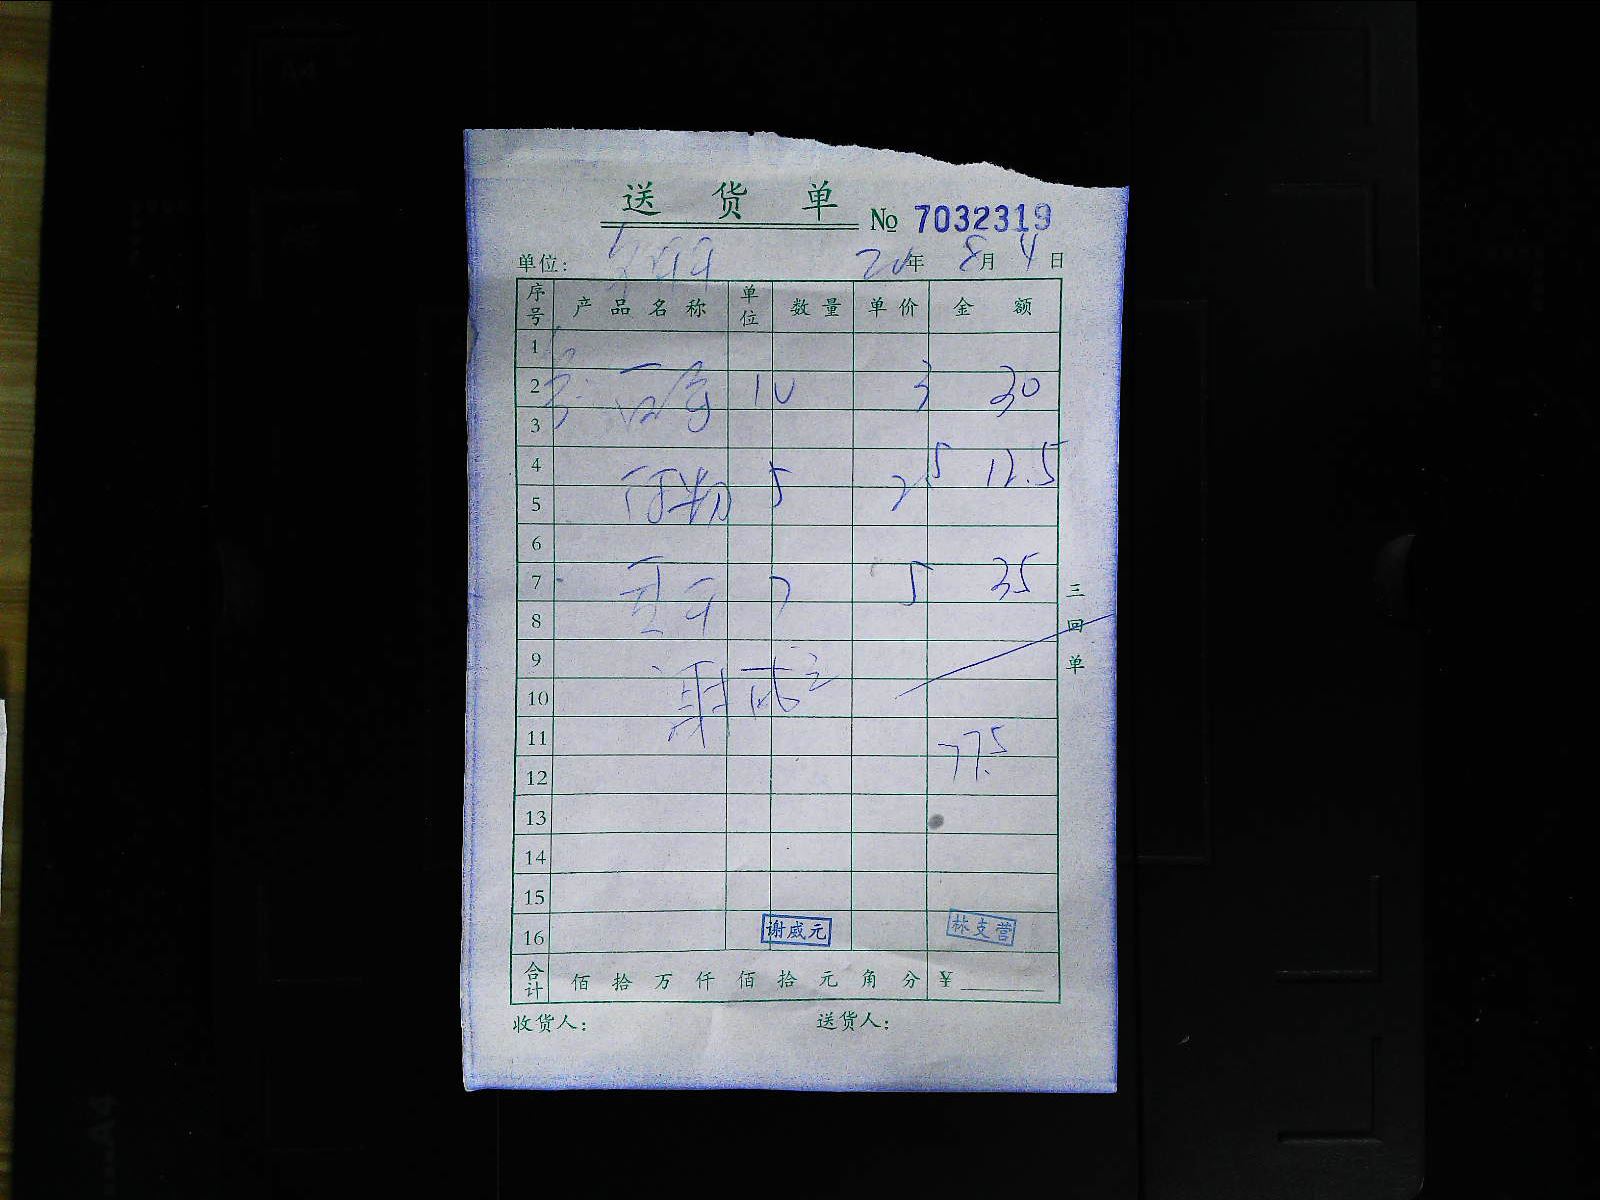 送 货 单
№ 7032319
单位: 20年 8月 4日
序号 产品名称 单位 数量 单价 金额
1
2 10 3 30
3
4 5 2.5 12.5
5
6
7 7 5 35
8
9
谢威元
10
11 77.5
12
13
14
15
16 谢威元 林支营
合计 佰 拾 万 仟 佰 拾 元 角 分 ¥
收货人: 送货人:
三回单